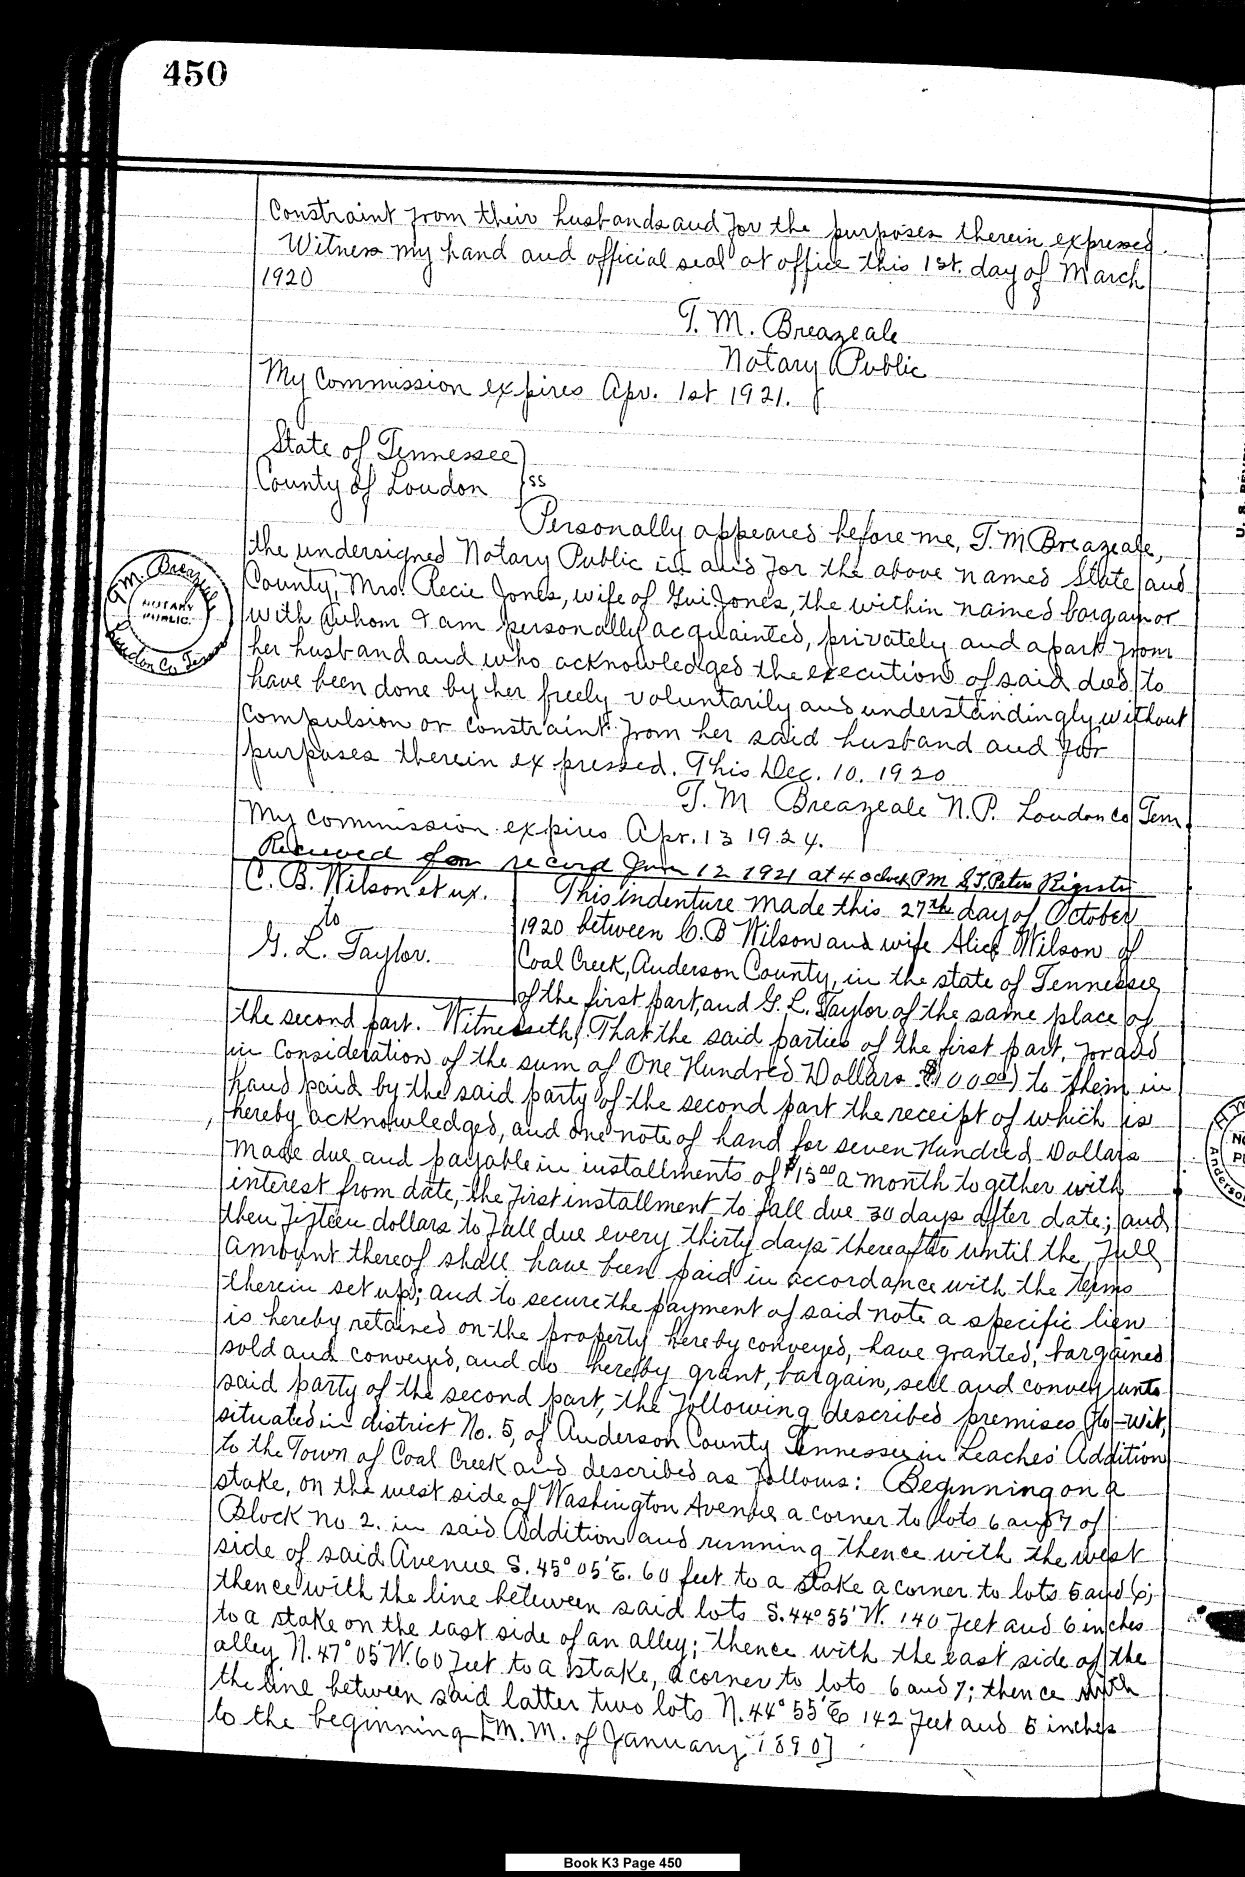 450
Constraint from their husbands and for the purposes therein expressed.
Witness my hand and official seal at office this 1st. day of March
1920
T. M. Breazeale
Notary Public
My Commission expires Apr. 1st 1921.
State of Tennessee
County of Loudon } ss
Personally appeared before me, T. M Breazeale,
the undersigned Notary Public in and for the above named State and
County, Mrs. Recie Jones, wife of Gui. Jones, the within named bargainor
with whom I am personally acquainted, privately and apart from
her husband and who acknowledged the execution of said deed to
have been done by her freely voluntarily and understandingly, without
compulsion or constraint from her said husband and for
purposes therein expressed. This Dec. 10. 1920
T. M. Breazeale
NOTARY
PUBLIC.
Loudon Co Tenn
T. M Breazeale N.P. Loudon Co Tenn.
My commission expires Apr. 13 1924.
Received for record Jan 12 1921 at 4 oclock PM S.T. Peters Register
C. B. Wilson et ux.
to
G. L. Taylor.
This indenture made this 27th day of October
1920 between C. B Wilson and wife Alice Wilson of
Coal Creek, Anderson County, in the state of Tennessee,
of the first part, and G. L. Taylor of the same place of
the second part. Witnesseth, That the said parties of the first part, for and
in Consideration of the sum of One Hundred Dollars ($100 00) to them in
hand paid by the said party of the second part the receipt of which is
hereby acknowledged, and one note of hand for seven Hundred Dollars
made due and payable in installments of $15 00 a month together with
interest from date, the first installment to fall due 30 days after date; and
then fifteen dollars to fall due every thirty days thereafter until the full
amount thereof shall have been paid in accordance with the terms
therein set up; and to secure the payment of said note a specific lien
is hereby retained on the property hereby conveyed, have granted, bargained
sold and conveyed, and do hereby grant, bargain, sell and convey unto
said party of the second part, the following described premises, to-wit,
situated in district No. 5, of Anderson County Tennessee in Leaches' Addition
to the Town of Coal Creek and described as follows: Beginning on a
stake, on the west side of Washington Avenue a corner to lots 6 and 7 of
Block No 2. in said Addition and running thence with the west
side of said Avenue S. 45° 05' E. 60 feet to a stake a corner to lots 5 and 6;
thence with the line between said lots S. 44° 55' W. 140 feet and 6 inches
to a stake on the east side of an alley; thence with the east side of the
alley N. 47° 05' W. 60 feet to a stake, a corner to lots 6 and 7; thence with
the line between said latter two lots N. 44° 55' E 142 feet and 5 inches
to the beginning [M. M. of January 1890]
Book K3 Page 450